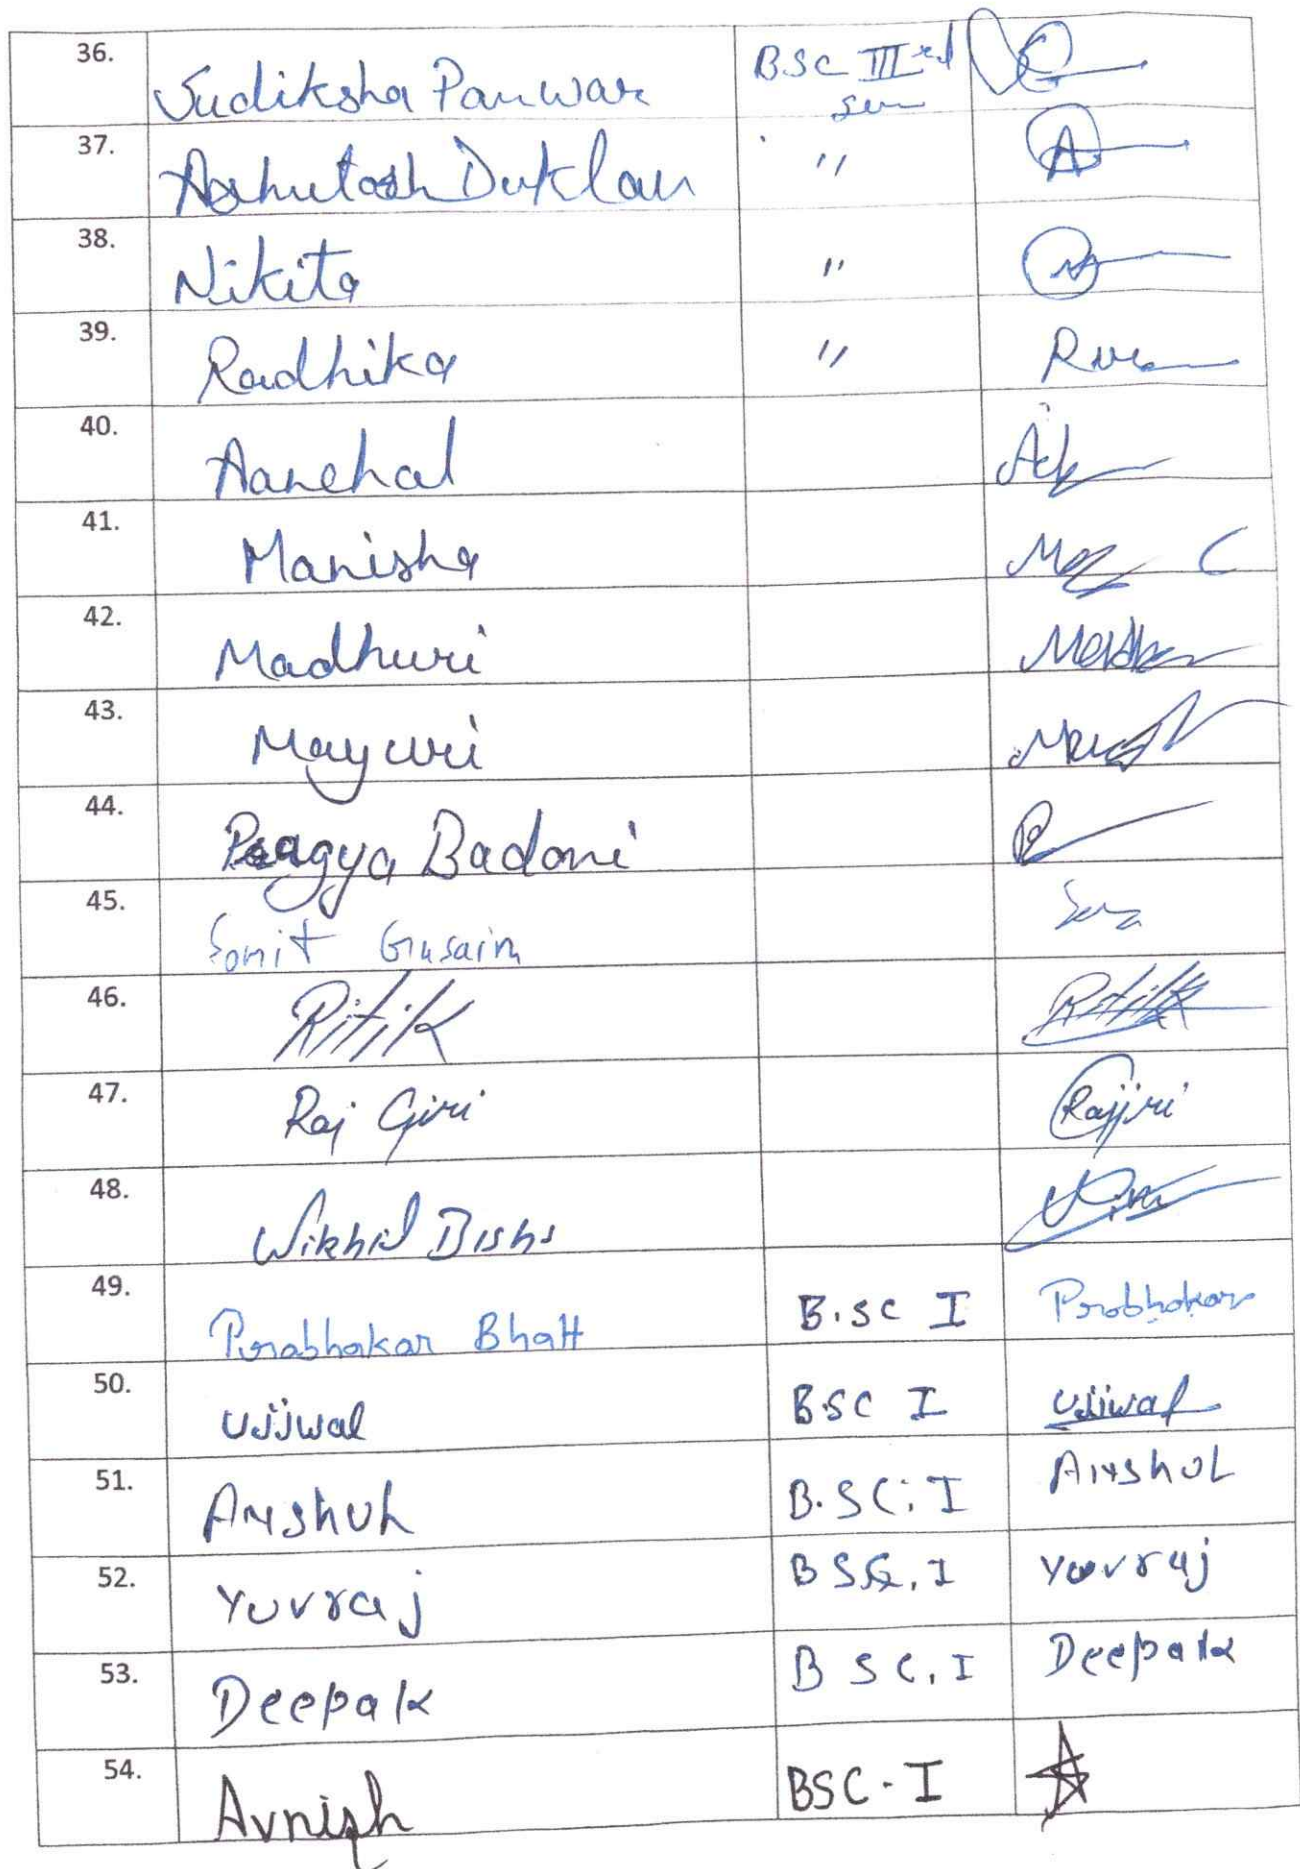 36. Sudiksha Panwar BSC IIIrd
sem
37. Ashutosh Duklan " A
38. Nikita "
39. Radhika "
40. Aanchal
41. Manisha
42. Madhuri
43. Mayuri
44. Pragya Badoni
45. Somit Gusain
46. Ritik Ritik
47. Raj Giri Rajjiri
48. Nikhil
49. Prabhakar Bhatt B.SC I Prabhakar
50. Ujjwal B.SC I Ujjwal
51. Anshul B.SC. I Anshul
52. Yuvraj BSC. I Yuvraj
53. Deepak B SC. I Deepak
54. Avnish BSC - I